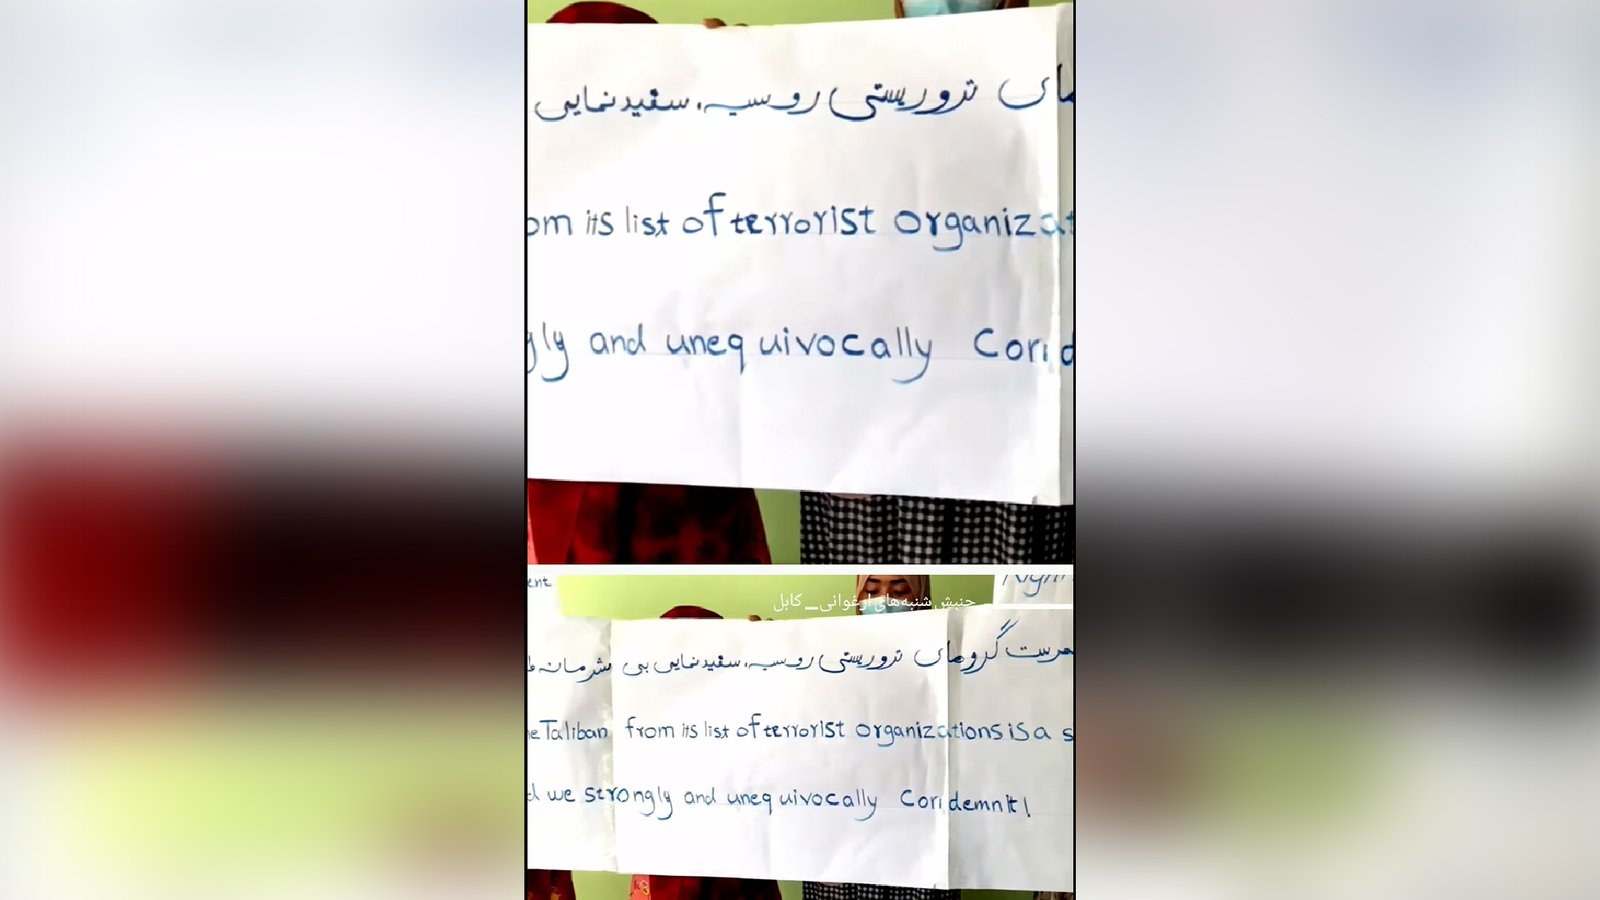 ترورستی روسیه، سفیدنمایی
its list of terrorist
and unequivocally
ent
جنبش شنبه‌های ارغوانی_کابل
گروهای ترورستی روسیه، سفیدنمایی بی شرمانه
Taliban from its list of terrorist organizations is a
we strongly and unequivocally Condemn it!